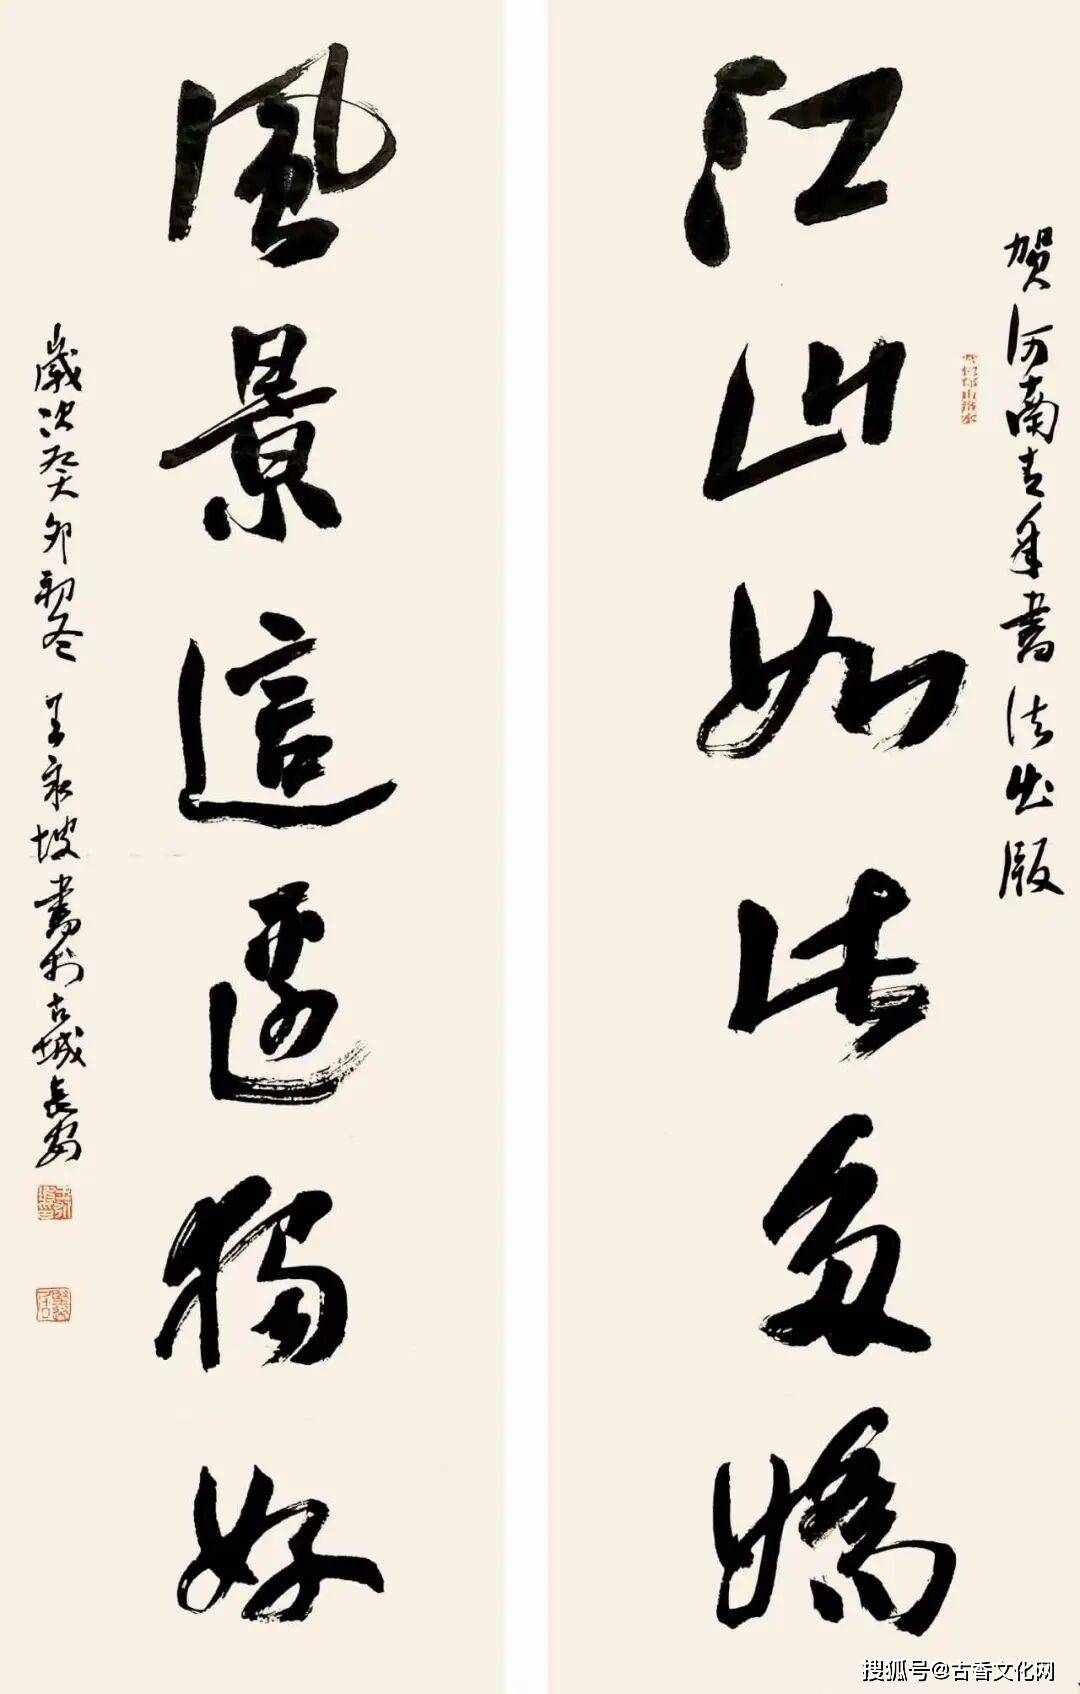 賀河南青年書法出版
江山如此多嬌
風景這邊獨好
歲次癸卯初冬 王永坡書於古城長安
搜狐号@古香文化网